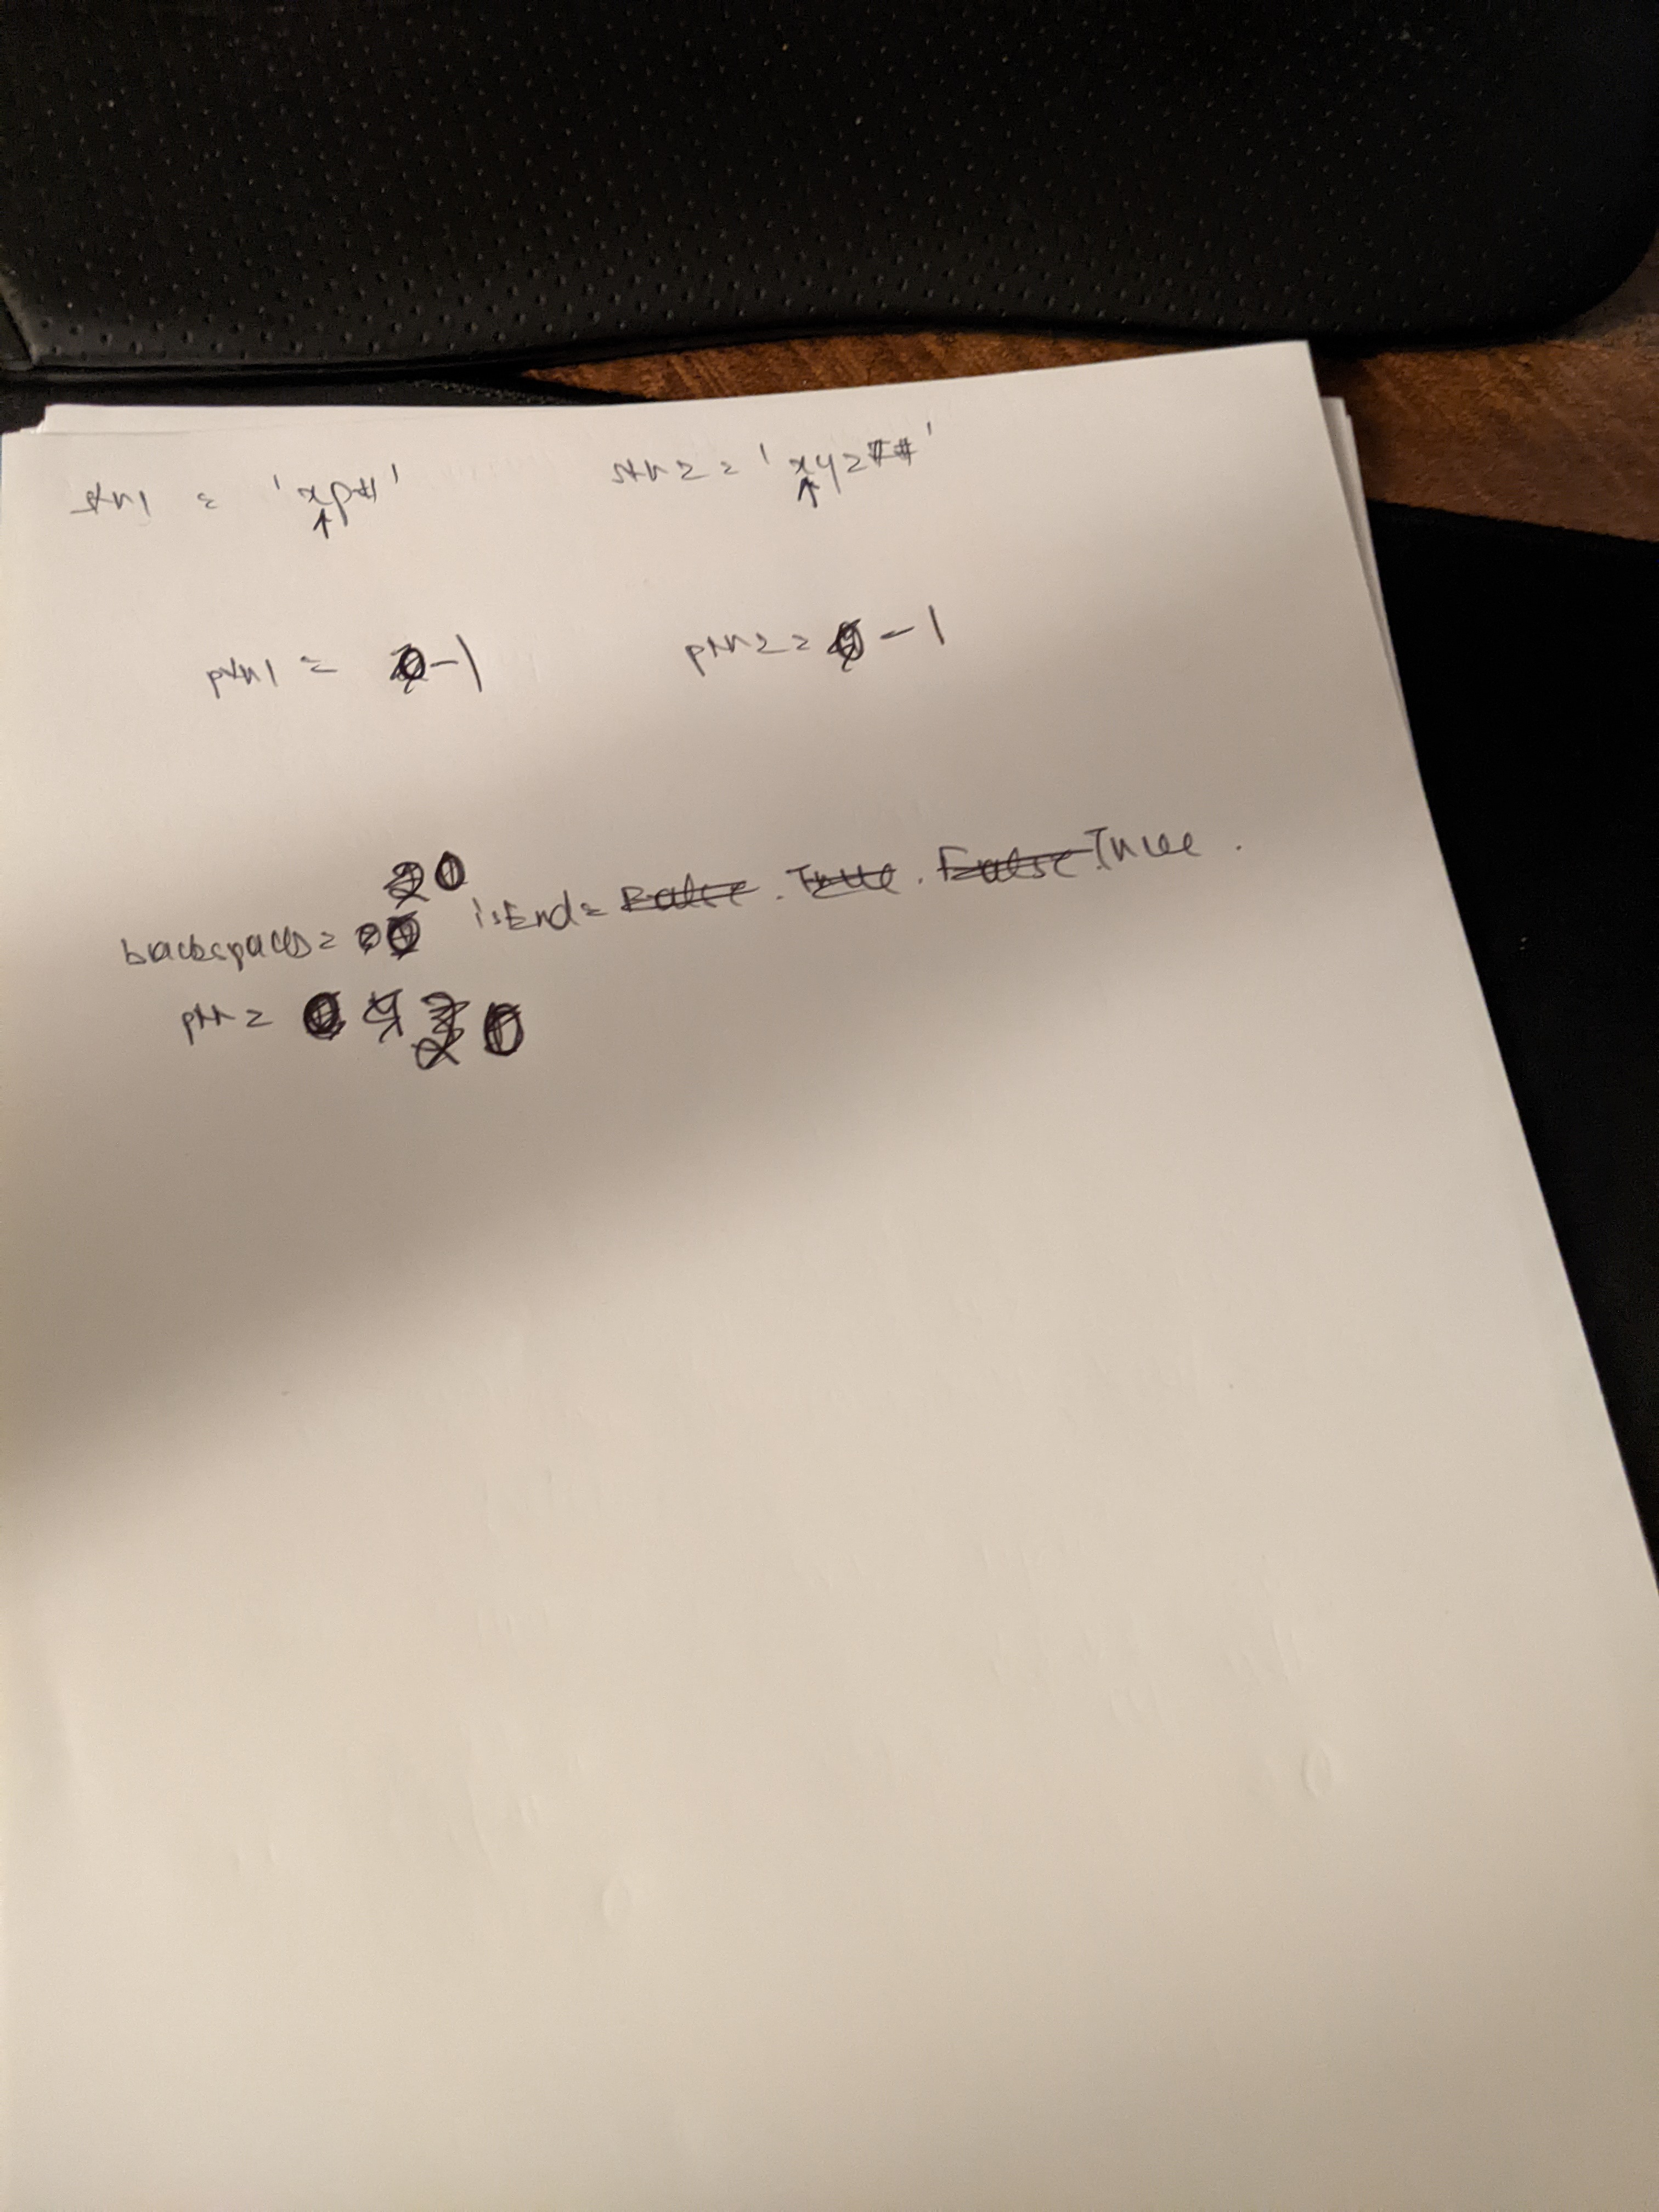 str1 = 'xp#' str2 = 'xyz##'
ptr1 = -1 ptr2 = -1
backspaces = isEnd = False. True. False. True.
ptr =